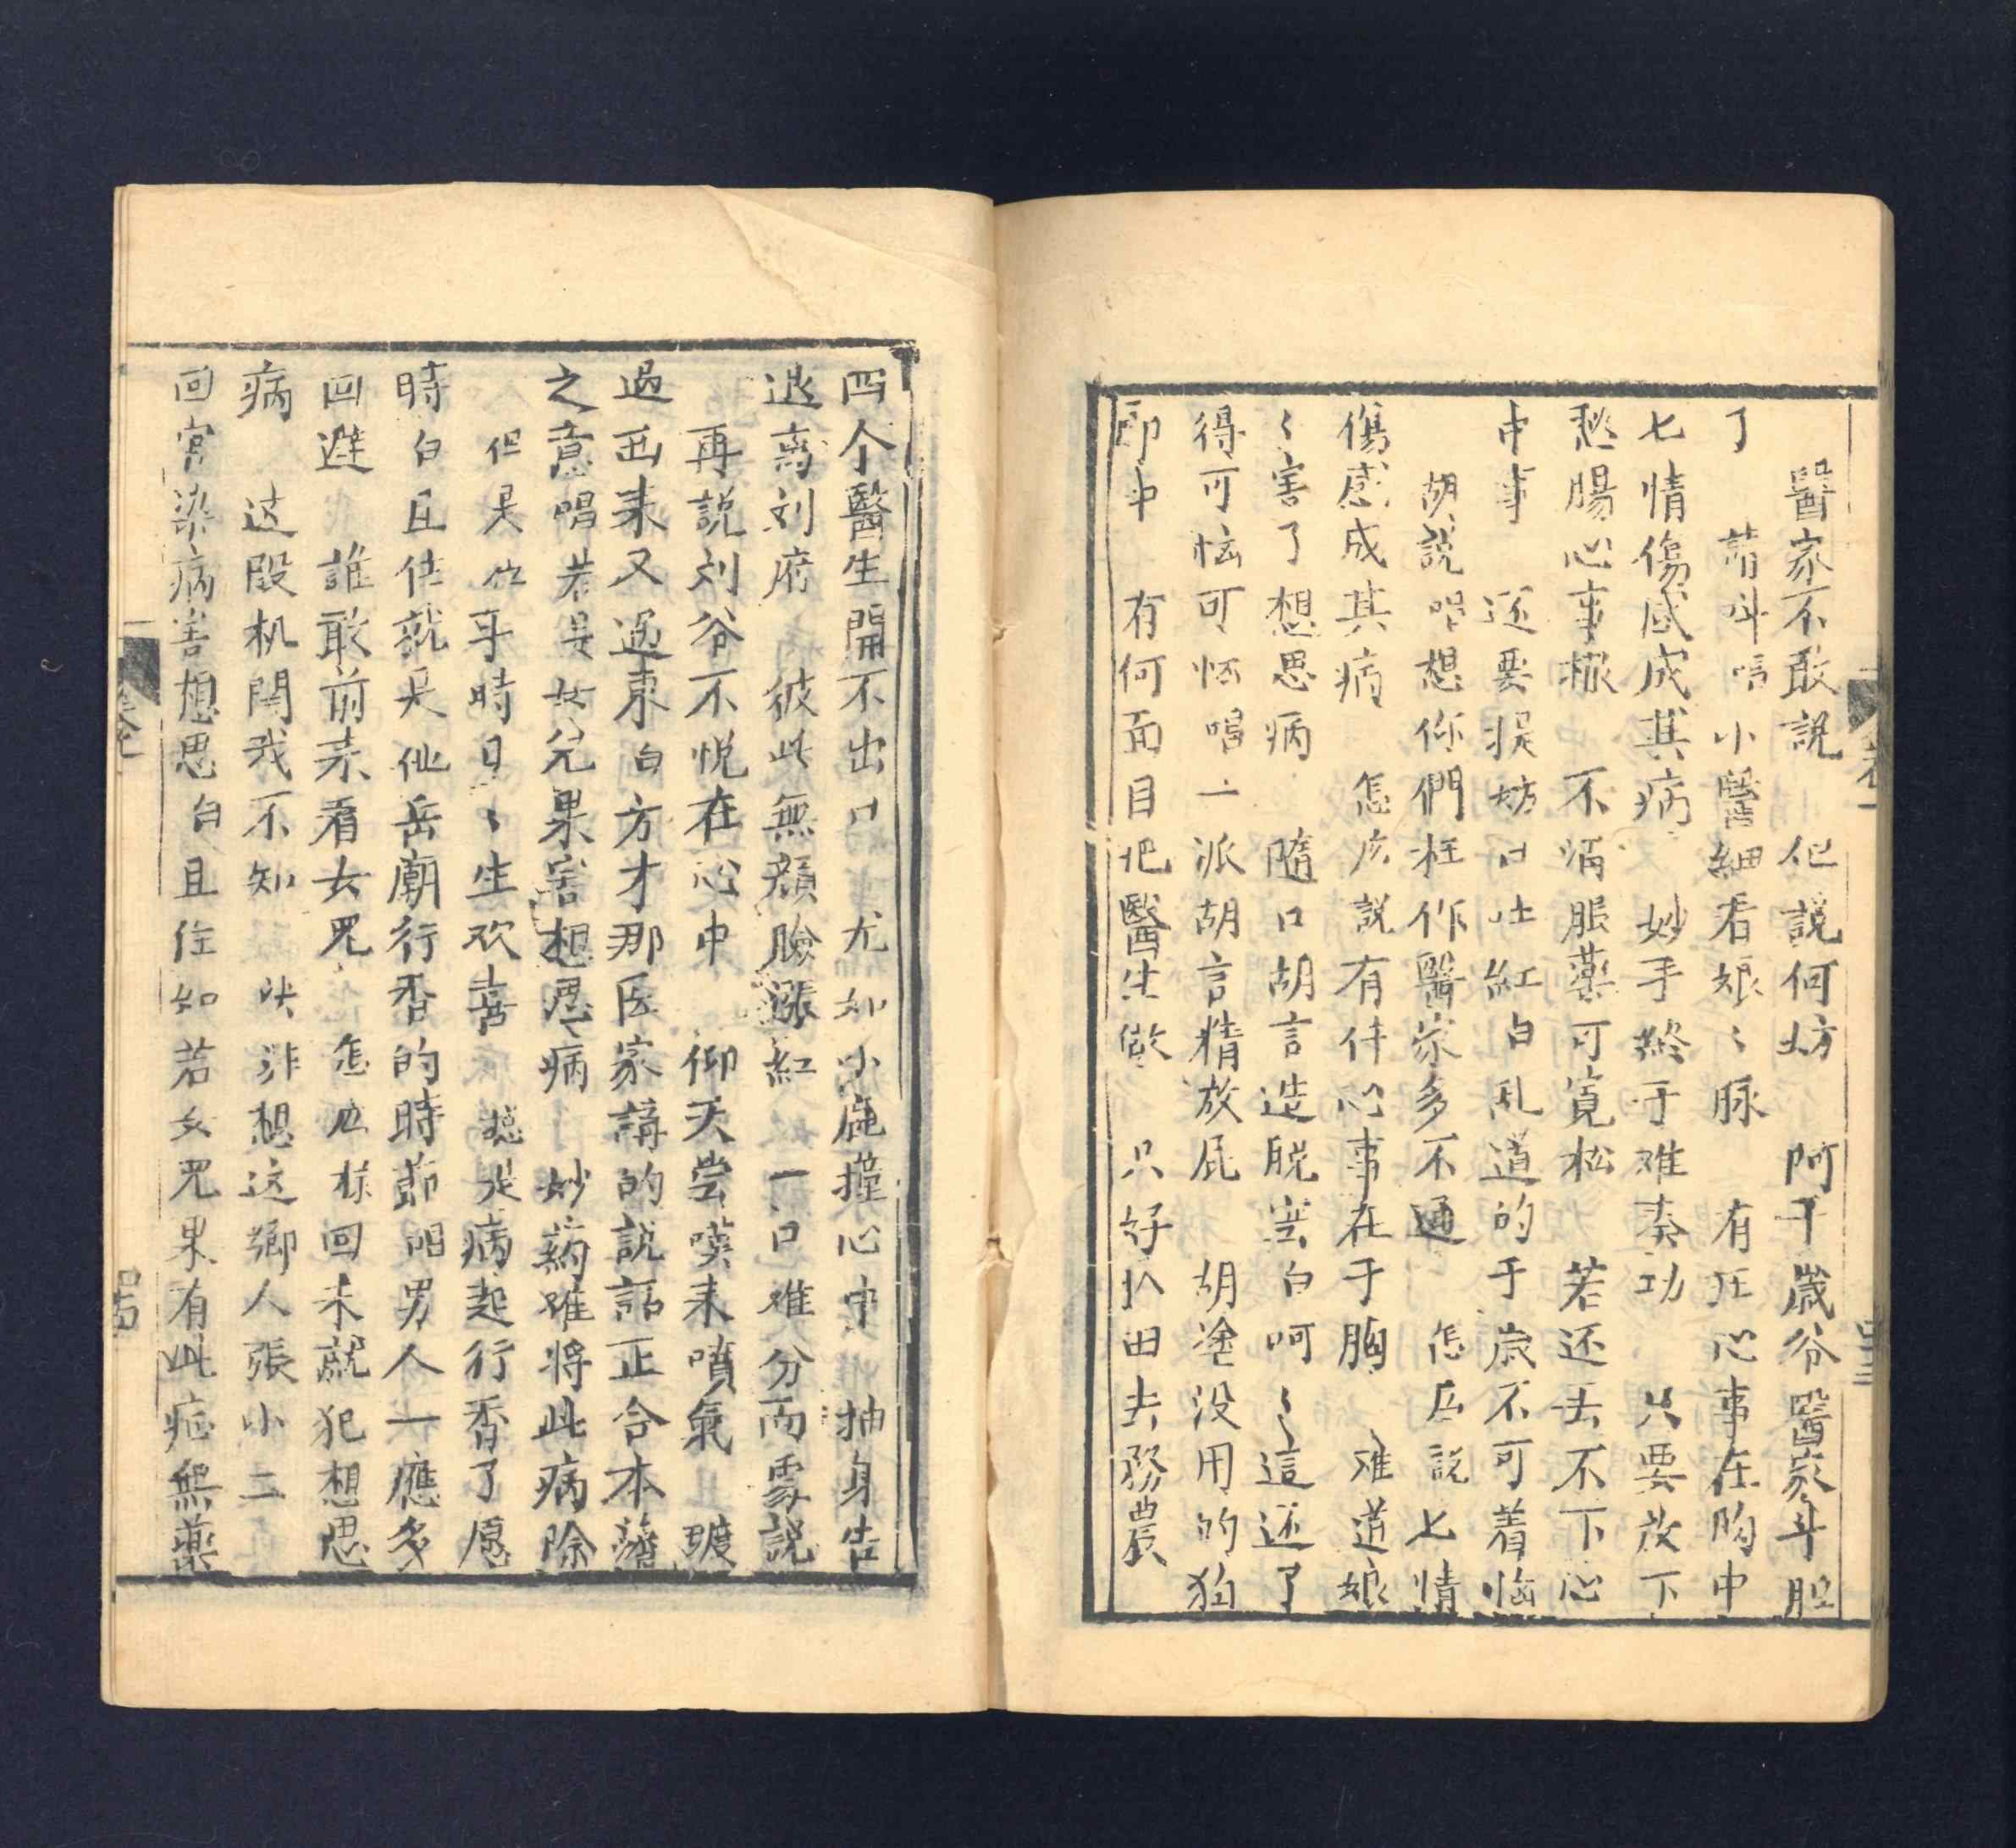 醫家不敢說 但說何妨 阿千歲爷醫家斗胆
了 請斗唱小醫細看娘〻脉 有狂心事在胸中
七情傷感成其病 妙手終于难奏功 只要放下
愁腸心事撒 不消服藥可寬松 若还丢不下心
中事 还要提妨口吐紅白乱道的千歲不可着恼
胡説唱想你們枉作醫家多不通 怎広說七情
傷感成其病 怎広說有件心事在于胸 难道娘
〻害了想思病 隨口胡言造脱空白呵〻這还了
得可恼可恼唱一派胡言精放屁 胡塗没用的狗
郎中 有何面目把醫生做 只好扒田去務農
四个醫生開不出口 尤如小鹿撞心中 抽身告
退离刘府 彼此無顔臉漲紅 一口难分两處説
再說刘爷不悦在心中 仰天嘗嘆来噴氣 踱
過西来又過東白方才那医家講的說話正合本藩
之意唱若是女兒果害想思病 妙藥难將此病除
但是他平時日〻生欢喜 總是病起行香了愿
時白且住就是他岳廟行香的時節唱男人一應多
回避 誰敢前来看女兒 怎広樣回来就犯想思
病 这段机関我不知 决非想这鄉人張小二
回宫染病害想思白且住如若女兒果有此症無藥